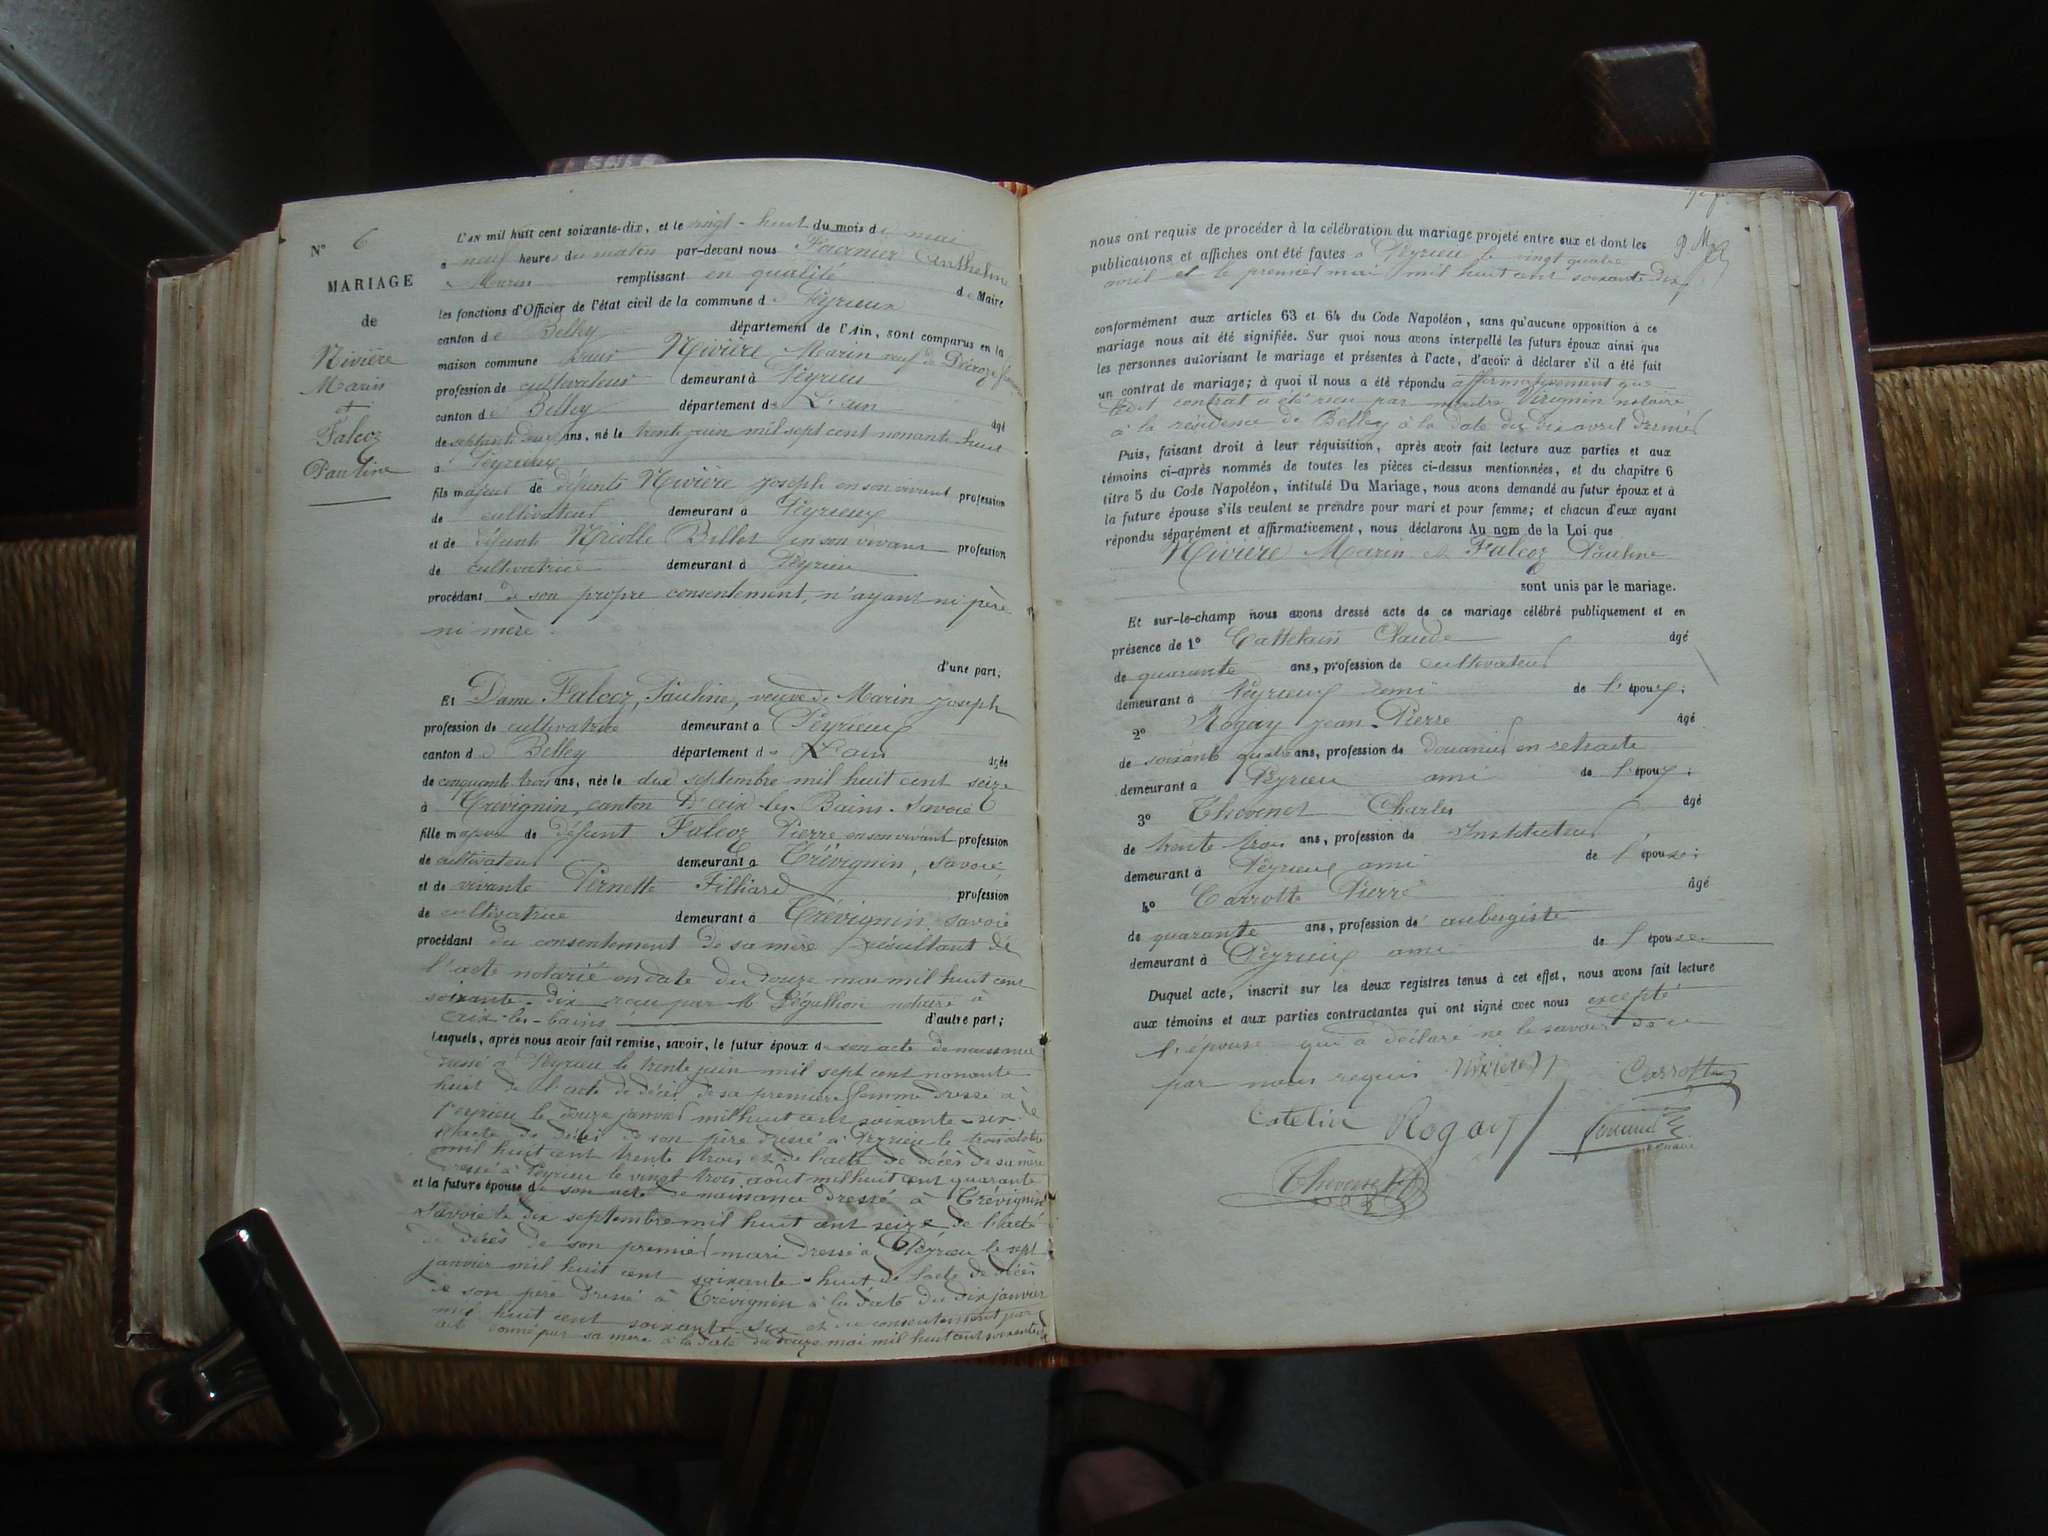 N° 6
MARIAGE
de
Nivière
Marin
et
Falcoz
Pauline
L'AN mil huit cent soixante-dix, et le vingt-huit du mois de mai
à neuf heures du matin par-devant nous Fournier Anthelme
Maire remplissant en qualité de Maire
les fonctions d'Officier de l'état civil de la commune de Peyrieux
canton de Belley département de l'Ain, sont comparus en la
maison commune Nivière Marin veuf de
profession de cultivateur demeurant à Peyrieu
canton de Belley département de L'ain âgé
de septante deux ans, né le trente juin mil sept cent nonante huit
à Peyrieux
fils majeur de défunt Nivière Joseph en son vivant profession
de cultivateur demeurant à Peyrieux
et de défunte Nicolle Billet en son vivant profession
de cultivatrice demeurant à Peyrieu
procédant de son propre consentement, n'ayant ni père
ni mère.
d'une part;
Et Dame Falcoz, Pauline, veuve de Marin Joseph
profession de cultivatrice demeurant à Peyrieux
canton de Belley département de L'ain âgée
de cinquante trois ans, née le dix septembre mil huit cent seize
à Trévignin, canton D'aix-les-Bains Savoie
fille majeure de défunt Falcoz Pierre en son vivant profession
de cultivateur demeurant à Trévignin, Savoie
et de vivante Pernette Filliard profession
de cultivatrice demeurant à Trévignin, Savoie
procédant du consentement de sa mère résultant de
l'acte notarié en date du douze mai mil huit cent
soixante-dix reçu par M. notaire à
aix-les-bains d'autre part;
Lesquels, après nous avoir fait remise, savoir, le futur époux de son acte de naissance
dressé à Peyrieu le trente juin mil sept cent nonante
huit de l'acte de décès de sa première femme dressé à
Peyrieu le douze janvier mil huit cent soixante-six de
l'acte de décès de son père dressé à Peyrieu le trois octobre
mil huit cent trente trois et de l'acte de décès de sa mère
dressé à Peyrieu le vingt trois août mil huit cent quarante
et la future épouse de son acte de naissance dressé à Trévignin
Savoie le dix septembre mil huit cent seize de l'acte
de décès de son premier mari dressé à Peyrieu le sept
janvier mil huit cent soixante-huit de l'acte de décès
de son père dressé à Trévignin à la date du dix janvier
mil huit cent soixante six et du consentement par
acte donné par sa mère à la date du douze mai mil huit cent soixante dix
nous ont requis de procéder à la célébration du mariage projeté entre eux et dont les
publications et affiches ont été faites à Peyrieu le vingt quatre
avril et le premier mai mil huit cent soixante dix
conformément aux articles 63 et 64 du Code Napoléon, sans qu'aucune opposition à ce
mariage nous ait été signifiée. Sur quoi nous avons interpellé les futurs époux ainsi que
les personnes autorisant le mariage et présentes à l'acte, d'avoir à déclarer s'il a été fait
un contrat de mariage; à quoi il nous a été répondu affirmativement que
ledit contrat a été reçu par maître notaire
à la résidence de Belley à la date du dix avril dernier
Puis, faisant droit à leur réquisition, après avoir fait lecture aux parties et aux
témoins ci-après nommés de toutes les pièces ci-dessus mentionnées, et du chapitre 6
titre 5 du Code Napoléon, intitulé Du Mariage, nous avons demandé au futur époux et à
la future épouse s'ils veulent se prendre pour mari et pour femme; et chacun d'eux ayant
répondu séparément et affirmativement, nous déclarons Au nom de la Loi que
Nivière Marin et Falcoz Pauline
sont unis par le mariage.
Et sur-le-champ nous avons dressé acte de ce mariage célébré publiquement et en
présence de 1° Cattelain Claude âgé
de quarante ans, profession de cultivateur
demeurant à Peyrieux ami de l'époux;
2° Rogay Jean-Pierre âgé
de soixante quatre ans, profession de douanier en retraite
demeurant à Peyrieu ami de l'époux;
3° Thevenet Charles âgé
de trente trois ans, profession de Instituteur
demeurant à Peyrieux ami de l'épouse;
4° Carrotte Pierre âgé
de quarante ans, profession de aubergiste
demeurant à Peyrieux ami de l'épouse
Duquel acte, inscrit sur les deux registres tenus à cet effet, nous avons fait lecture
aux témoins et aux parties contractantes qui ont signé avec nous excepté
l'épouse qui a déclaré ne le savoir de ce
par nous requis Nivière Carrotte
Catelin Rogay Fournier
Thevenet